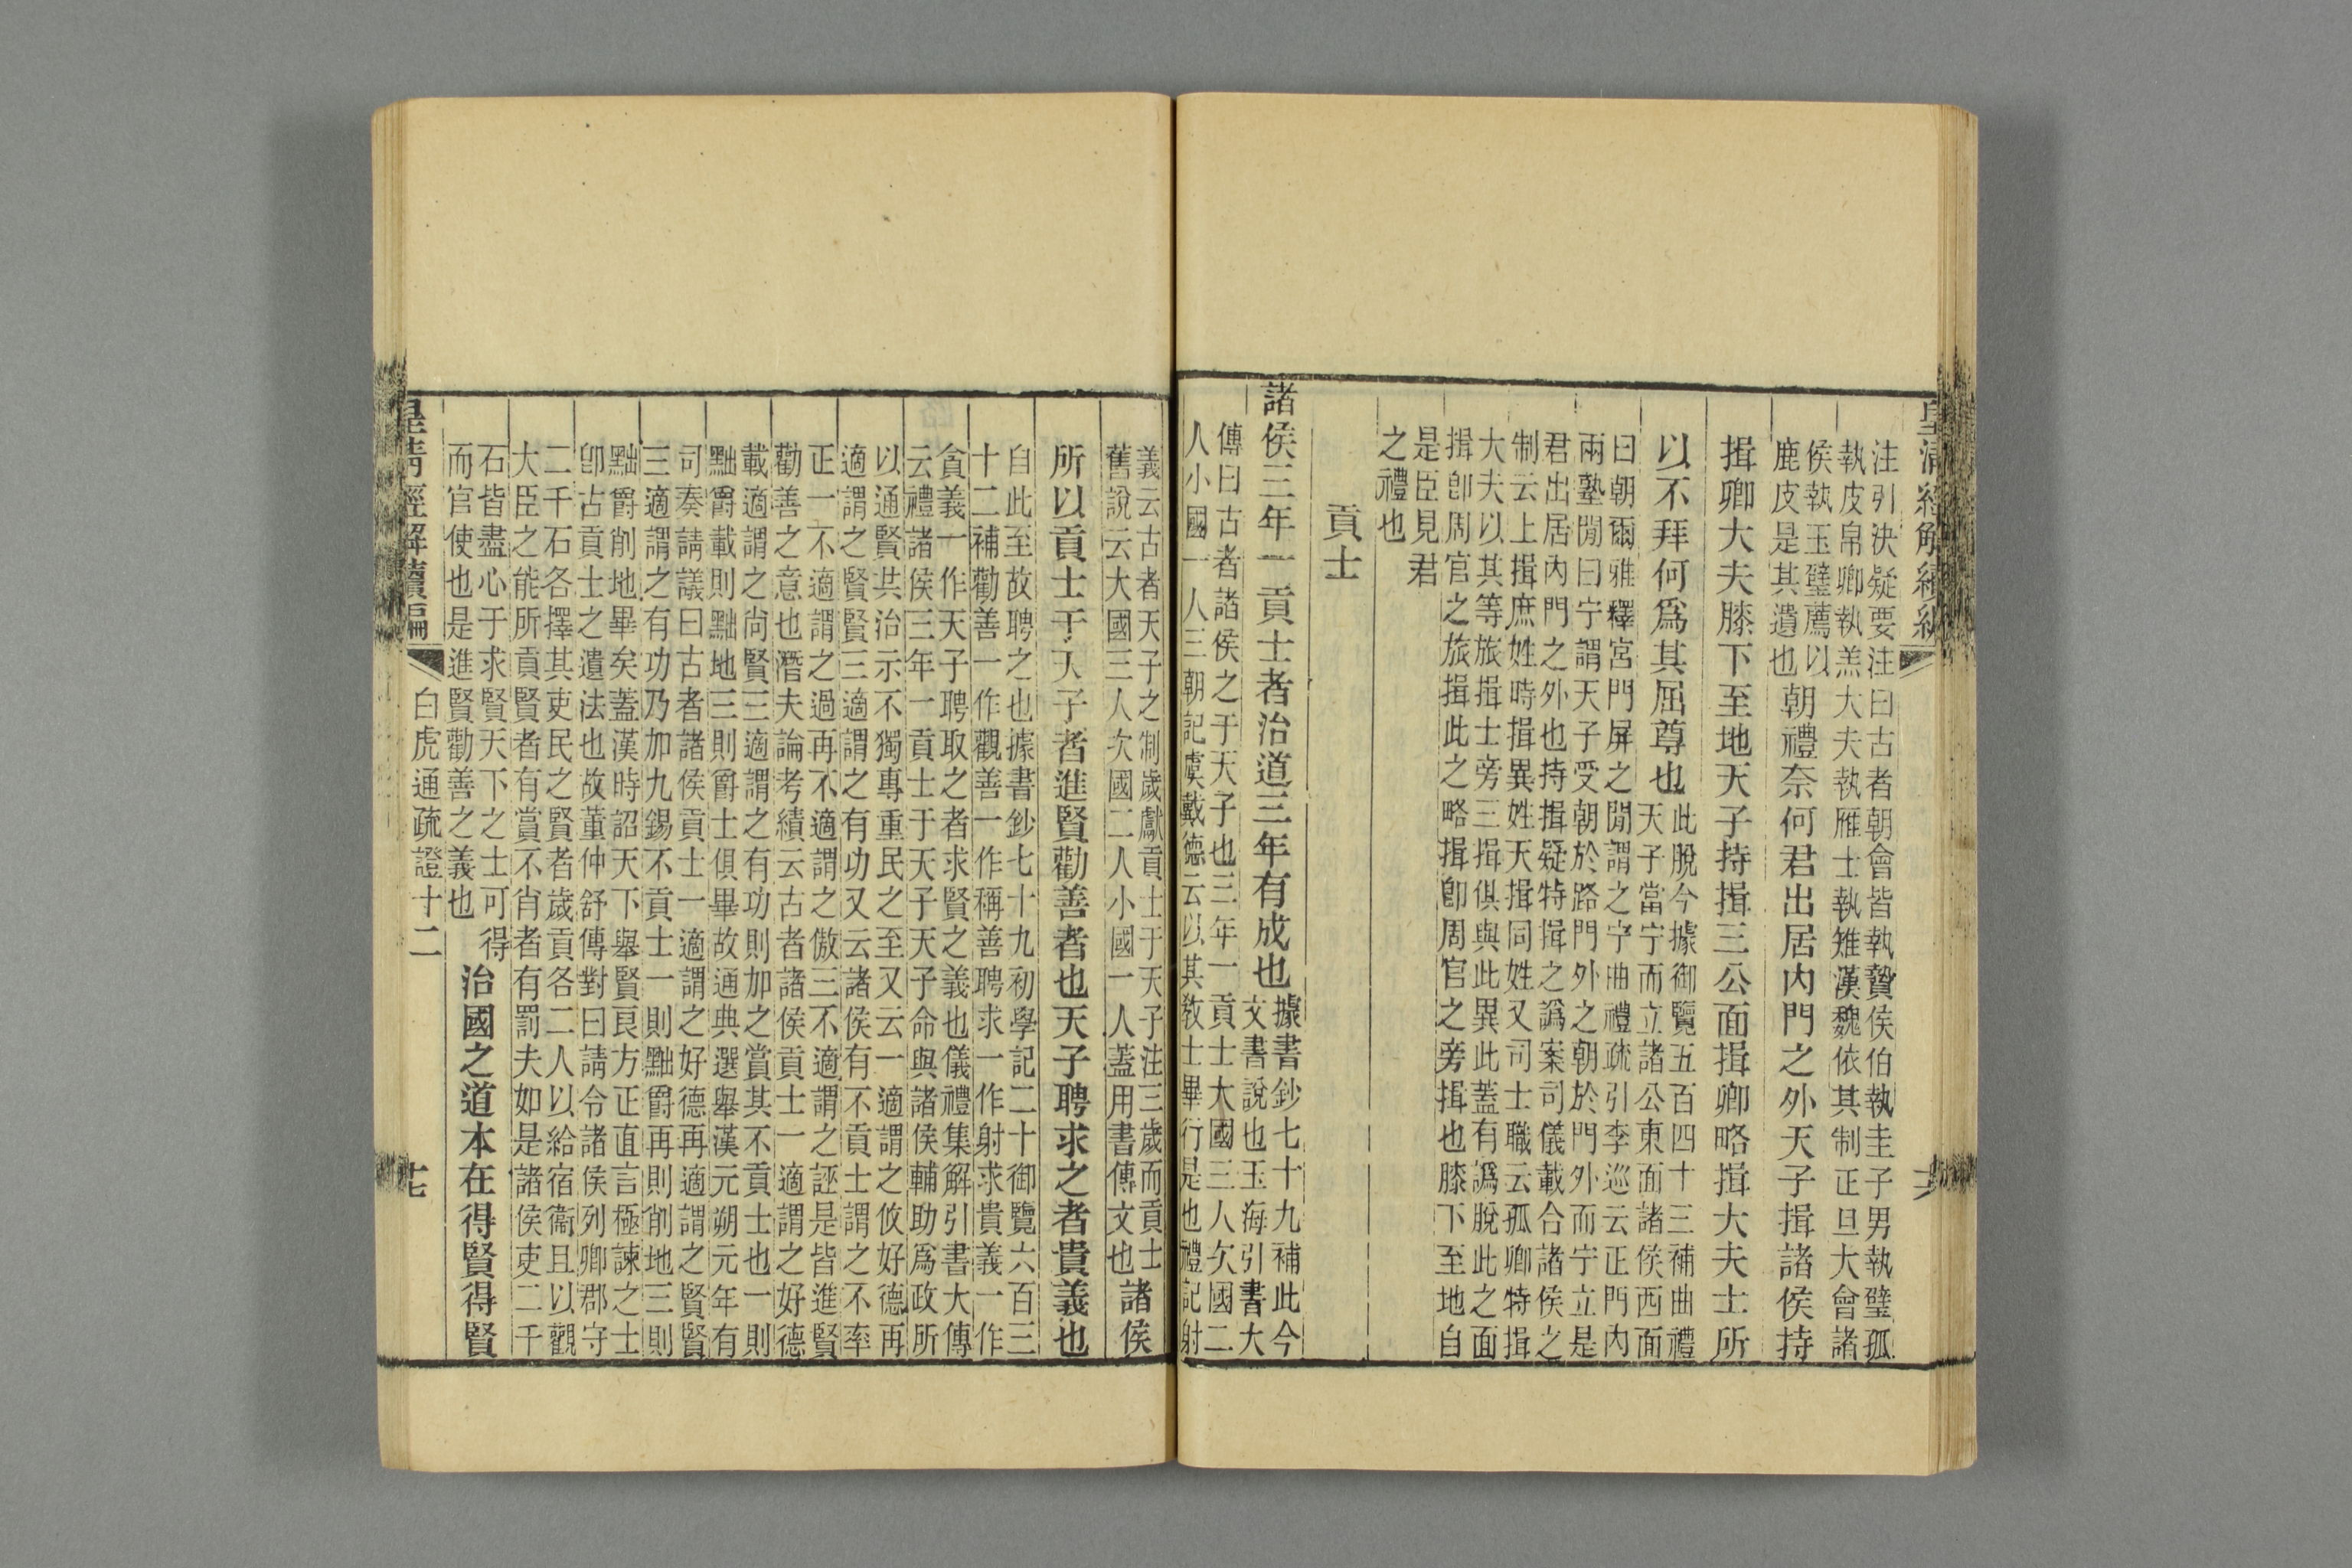 皇清經解續編
注引決疑要注曰古者朝會皆執贄侯伯執圭子男執璧孤
執皮帛卿執羔大夫執雁士執雉漢魏依其制正旦大會諸
侯執玉璧薦以
鹿皮是其遺也
朝禮奈何君出居內門之外天子揖諸侯持
揖卿大夫膝下至地天子持揖三公面揖卿略揖大夫士所
以不拜何爲其屈尊也
此脫今據御覽五百四十三補曲禮
天子當宁而立諸公東面諸侯西面
曰朝爾雅釋宮門屏之閒謂之宁曲禮疏引李巡云正門內
兩塾閒曰宁謂天子受朝於路門外之朝於門外而宁立是
君出居內門之外也持揖疑特揖之譌案司儀載合諸侯之
制云上揖庶姓時揖異姓天揖同姓又司士職云孤卿特揖
大夫以其等旅揖士旁三揖俱與此異此蓋有譌脫此之面
揖卽周官之旅揖此之略揖卽周官之旁揖也膝下至地自
是臣見君
之禮也
貢士
諸侯三年一貢士者治道三年有成也
據書鈔七十九補此今
文書說也玉海引書大
傳曰古者諸侯之于天子也三年一貢士大國三人次國二
人小國一人三朝記虞戴德云以其敎士畢行是也禮記射
義云古者天子之制歲獻貢士于天子注三歲而貢士
舊說云大國三人次國二人小國一人蓋用書傳文也
諸侯
所以貢士于天子者進賢勸善者也天子聘求之者貴義也
自此至故聘之也據書鈔七十九初學記二十御覽六百三
十二補勸善一作觀善一作稱善聘求一作射求貴義一作
貪義一作天子聘取之者求賢之義也儀禮集解引書大傳
云禮諸侯三年一貢士于天子天子命與諸侯輔助爲政所
以通賢共治示不獨專重民之至又云一適謂之攸好德再
適謂之賢賢三適謂之有功又云諸侯有不貢士謂之不率
正一不適謂之過再不適謂之傲三不適謂之誣是皆進賢
勸善之意也潛夫論考績云古者諸侯貢士一適謂之好德
載適謂之尙賢三適謂之有功則加之賞其不貢士也一則
黜爵載則黜地三則爵士俱畢故通典選舉漢元朔元年有
司奏請議曰古者諸侯貢士一適謂之好德再適謂之賢賢
三適謂之有功乃加九錫不貢士一則黜爵再則削地三則
黜爵削地畢矣蓋漢時詔天下舉賢良方正直言極諫之士
卽古貢士之遺法也故董仲舒傳對曰請令諸侯列卿郡守
二千石各擇其吏民之賢者歲貢各二人以給宿衞且以觀
大臣之能所貢賢者有賞不肖者有罰夫如是諸侯吏二千
石皆盡心于求賢天下之士可得
而官使也是進賢勸善之義也
治國之道本在得賢得賢
皇清經解續編
白虎通疏證十二
十七